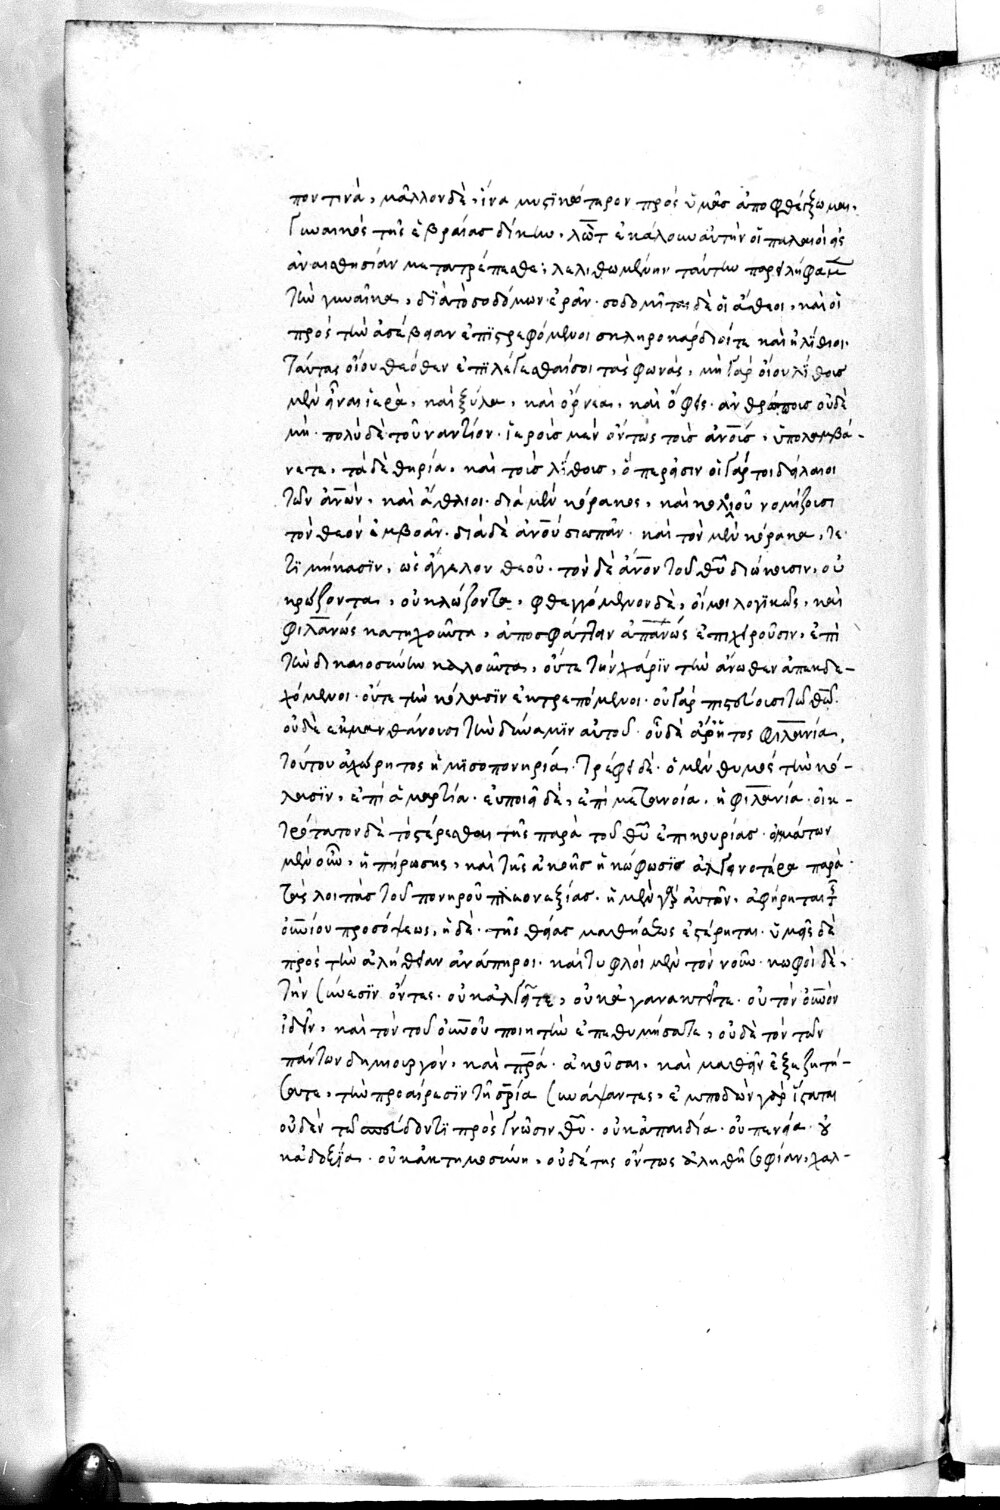 που τινὰ, μᾶλλον δὲ, ἵνα μυστικώτερον πρὸς ὑμᾶς ἀποφθέγξωμαι.
γυναικὸς τῆς ἑβραίας δίκην, λὼτ ἐκάλουν αὐτὴν οἱ παλαιοὶ εἰς
ἀναισθησίαν μετατρέπεσθε; λελιθωμένην ταύτην παρειλήφαμεν
τὴν γυναῖκα, διὰ τὸ σοδόμων ἐρᾶν· σοδομῖται δὲ οἱ ἄθεοι, καὶ οἱ
πρὸς τὴν ἀσέβειαν ἐπιστρεφόμενοι σκληροκάρδιοί τε καὶ ἠλίθιοι.
ταύτας οἴου θεόθεν ἐπιλέγεσθαί σοι τὰς φωνάς, μὴ γὰρ οἴου λίθους
μὲν εἶναι ἱερὰ, καὶ ξύλα, καὶ ὄρνεα, καὶ ὄφεις· ἀνθρώπους οὐδὲ
μὴ· πολὺ δὲ τοὐναντίον· ἱεροὺς μὲν ὄντως τοὺς ἀνους, ὑπολαμβά-
νετε, τὰ δὲ θηρία, καὶ τοὺς λίθους, ὅπερ εἰσιν οἱ γάρ τοι δείλαιοι
τῶν ἀνων, καὶ ἄθλιοι· διὰ μὲν κόρακος, καὶ κολοιοῦ νομίζουσι
τὸν θεὸν ἐμβοᾶν· διὰ δὲ ἀνου σιωπᾶν· καὶ τὸν μὲν κόρακα, τε-
τιμήκασιν, ὡς ἄγγελον θεοῦ· τὸν δὲ ἄνον τοῦ θυ διώκουσιν, οὐ
κρώζοντα, οὐ κλώζοντα, φθεγγόμενον δὲ, οἴμοι λογικῶς, καὶ
φιλανως κατηχοῦντα, ἀποσφάττειν ἀπανως ἐπιχειροῦσιν, ἐπὶ
τὴν δικαιοσύνην καλοῦντα, οὔτε τὴν χάριν τὴν ἄνωθεν ἀπεκδε-
χόμενοι· οὔτε τὴν κόλασιν ἐκτρεπόμενοι· οὐ γὰρ πιστεύουσι τῷ θω
οὐδὲ ἐκμανθάνουσι τὴν δύναμιν αὐτοῦ· οὗ δὲ ἄρρητος φιλανία,
τούτου ἀχώρητος ἡ μισοπονηρία. τρέφει δὲ· ὁ μὲν θυμὸς τὴν κό-
λασιν, ἐπὶ ἁμαρτία· εὐποιεῖ δὲ, ἐπὶ μετανοία, ἡ φιλανία· οἰκ-
τρότατον δὲ τὸ στέρεσθαι τῆς παρὰ τοῦ θυ ἐπικουρίας· ὀμμάτων
μὲν οὖν, ἡ πήρωσις, καὶ τῆς ἀκοῆς ἡ κώφωσις ἀλγεινοτέρα παρὰ
τὰς λοιπὰς τοῦ πονηροῦ πλεονεξίας. ἡ μὲν γὰρ αὐτῶν, ἀφήρηται τῆς
οὐνίου προσόψεως, ἡ δὲ· τῆς θείας μαθήσεως ἐστέρηται· ὑμεῖς δὲ
πρὸς τὴν ἀλήθειαν ἀνάπηροι· καὶ τυφλοὶ μὲν τὸν νοῦν· κωφοὶ δὲ,
τὴν σύνεσιν ὄντες· οὐκ ἀλγεῖτε, οὐκ ἀγανακτεῖτε· οὐ τὸν οὐνον
ἰδεῖν, καὶ τὸν τοῦ οὐνου ποιητὴν ἐπεθυμήσατε, οὐδὲ τὸν τῶν
πάντων δημιουργὸν, καὶ πρα· ἀκοῦσαι, καὶ μαθεῖν ἐξεζητή-
σατε, τὴν προαίρεσιν τῇ σρία συνάψαντες, ἐμποδὼν γὰρ ἵσταται
οὐδὲν τῷ σπεύδοντι πρὸς γνῶσιν θυ· οὐκ ἀπαιδία· οὐ πενία· οὐ
κ ἀδοξία· οὐκ ἀκτημοσύνη, οὐδέ τις ὄντως ἀληθῆ σοφίαν, χαλ-